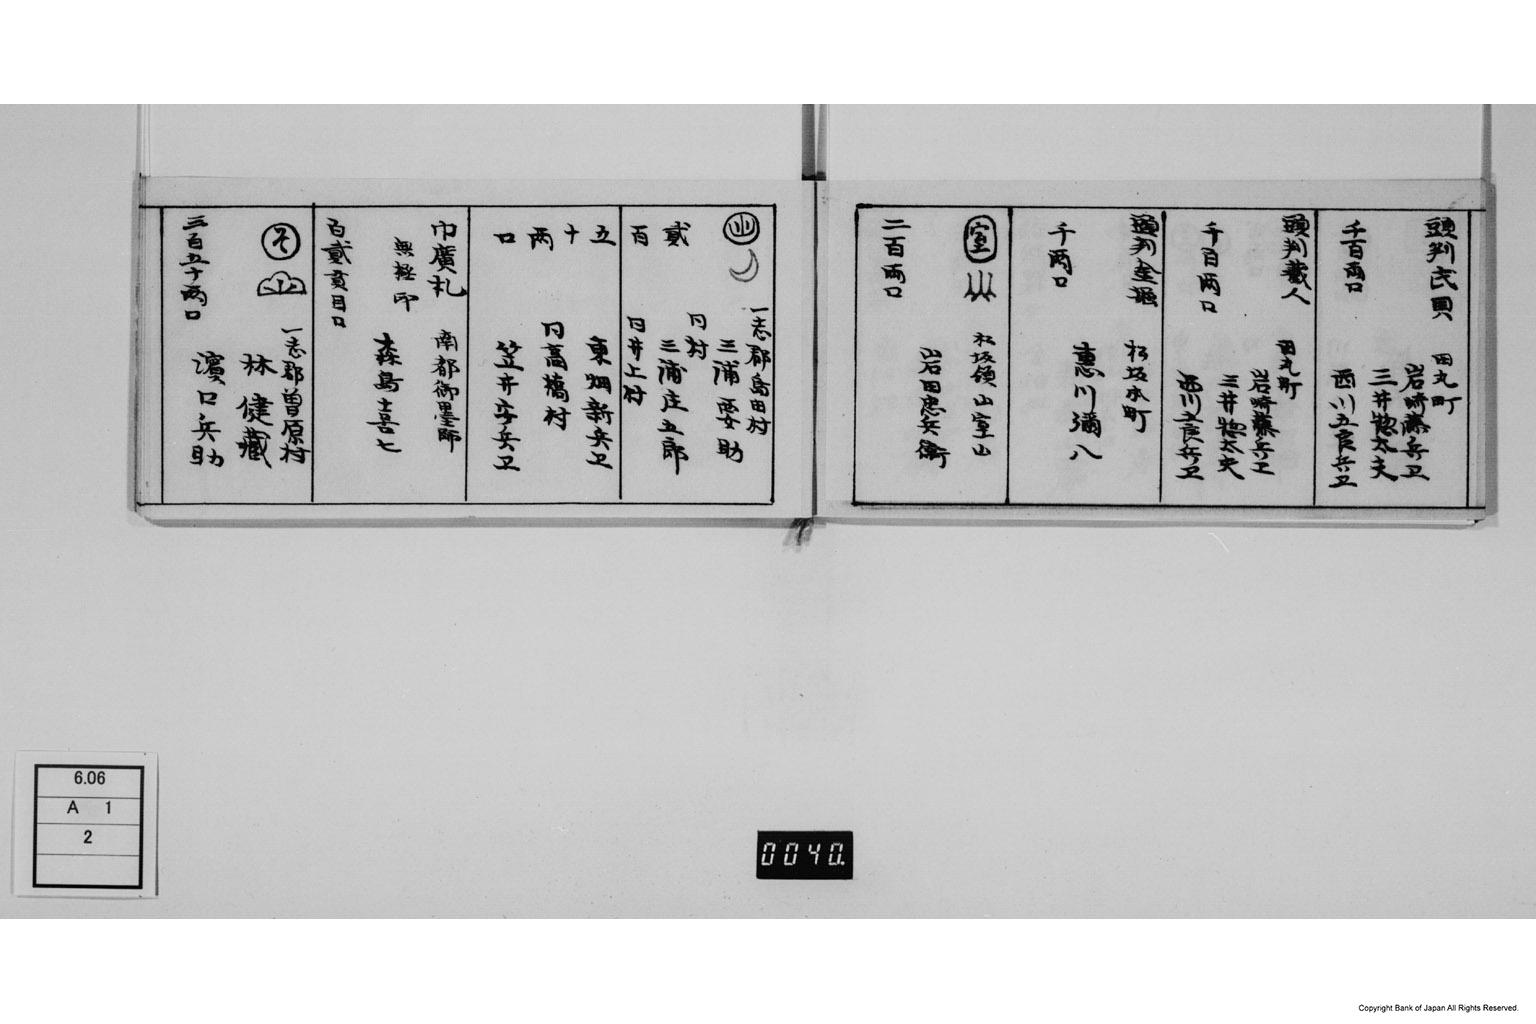 頭判民興
田丸町
岩﨑藤兵卫
千百両口
三井惣太夫
西川五良兵卫
頭判蔵人
田丸町
岩﨑藤兵卫
千百両口
三井惣太夫
西川五良兵卫
頭判金
松坂本町
千両口
恵川彌八
室
松坂領山室山
二百両口
岩田忠兵衛
一志郡島田村
三浦要助
同村
三浦庄五郎
同井上村
東畑新兵卫
同高橋村
笠井安兵卫
貳百五十両口
巾廣札
南都御墨師
無極印
森島喜七
百貳貫目口
そ
一志郡曽原村
林健藏
濵口兵助
三百五十両口
6.06
A 1
2
0040.
Copyright Bank of Japan All Rights Reserved.